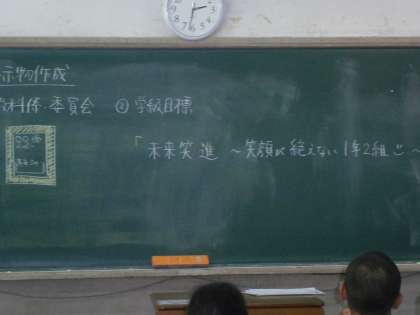 示物作成
教科係・委員会 ②学級目標
「未来笑進 ～笑顔が絶えない1年2組～